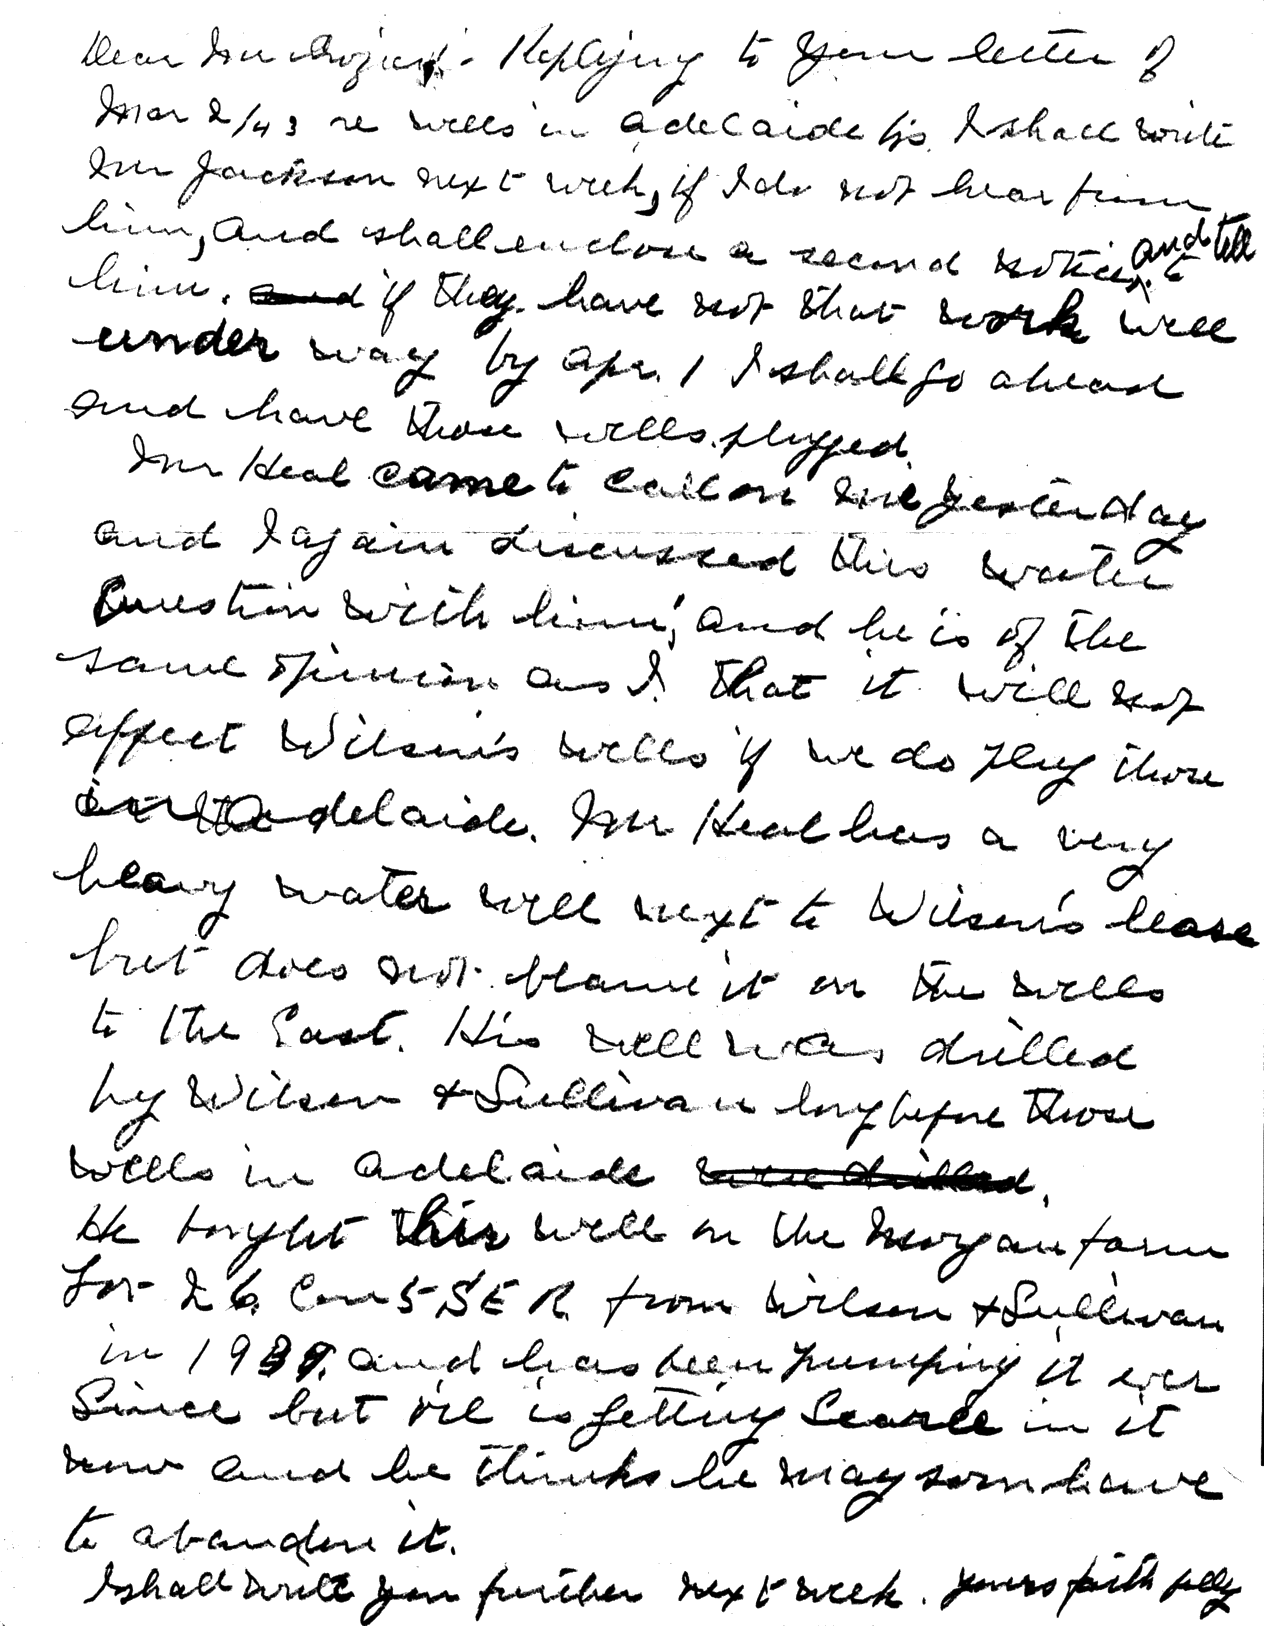 Dear Mr - Replying to your letter of
Mar 2/43 re wells in Adelaide tp. I shall write
Mr Jackson next week, if I do not hear from
him, and shall enclose a second notice and tell
him. and if they have not that work well
under way by Apr. 1 I shall go ahead
and have those wells plugged.
Mr Heal came to call on me yesterday
and I again discussed this water
question with him, and he is of the
same opinion as I that it will not
effect Wilson's wells if we do plug those
in Adelaide. Mr Heal has a very
heavy water well next to Wilson's lease
but does not blame it on the wells
to the East. His well was drilled
by Wilson & Sullivan long before those
wells in Adelaide were drilled.
He bought this well on the Morgan farm
Lot 26. Con 5 S E R from Wilson & Sullivan
in 1939. and has been pumping it ever
since but oil is getting scarce in it
now and he thinks he may soon have
to abandon it.
I shall write you further next week. yours faithfully